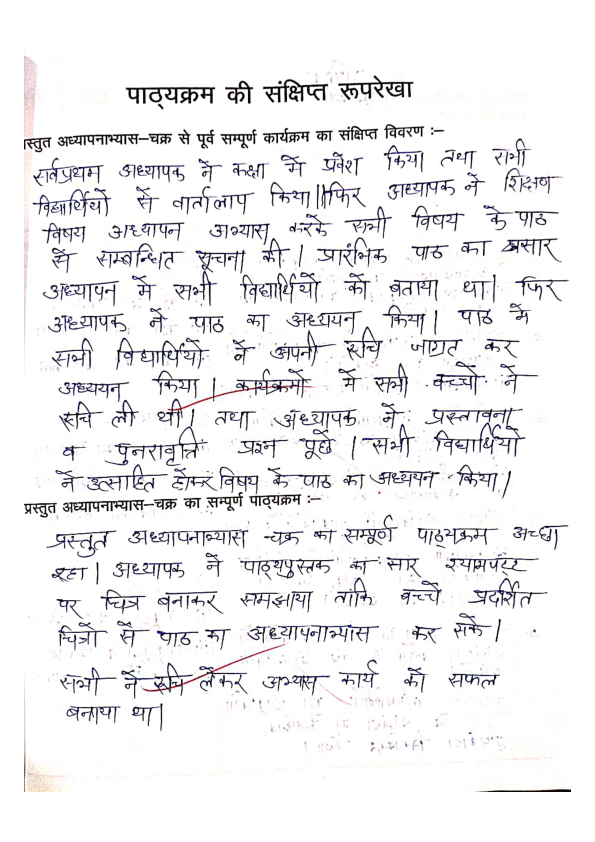 पाठ्यक्रम की संक्षिप्त रूपरेखा
स्तुत अध्यापनाभ्यास–चक्र से पूर्व सम्पूर्ण कार्यक्रम का संक्षिप्त विवरण :–
सर्वप्रथम अध्यापक ने कक्षा में प्रवेश किया तथा सभी
विद्यार्थियों से वार्तालाप किया। फिर अध्यापक ने शिक्षण
विषय अध्यापन अभ्यास करके सभी विषय के पाठ
से सम्बन्धित सूचना की। प्रारंभिक पाठ का
अध्यापन में सभी विद्यार्थियों को बताया था। फिर
अध्यापक ने पाठ का अध्ययन किया। पाठ में
सभी विद्यार्थियों ने अपनी रूचि जाग्रत कर
अध्ययन किया। कार्यक्रमों में सभी बच्चों ने
रूचि ली थी। तथा अध्यापक ने प्रस्तावना
व पुनरावृत्ति प्रश्न पूछे। सभी विद्यार्थियों
ने उत्साहित होकर विषय के पाठ का अध्ययन किया।
प्रस्तुत अध्यापनाभ्यास–चक्र का सम्पूर्ण पाठ्यक्रम :–
प्रस्तुत अध्यापनाभ्यास चक्र का सम्पूर्ण पाठ्यक्रम अच्छा
रहा। अध्यापक ने पाठ्यपुस्तक का सार श्यामपट्ट
पर चित्र बनाकर समझाया ताकि बच्चे प्रदर्शित
चित्रों से पाठ का अध्यापनाभ्यास कर सके।
सभी ने रूचि लेकर अभ्यास कार्य को सफल
बनाया था।